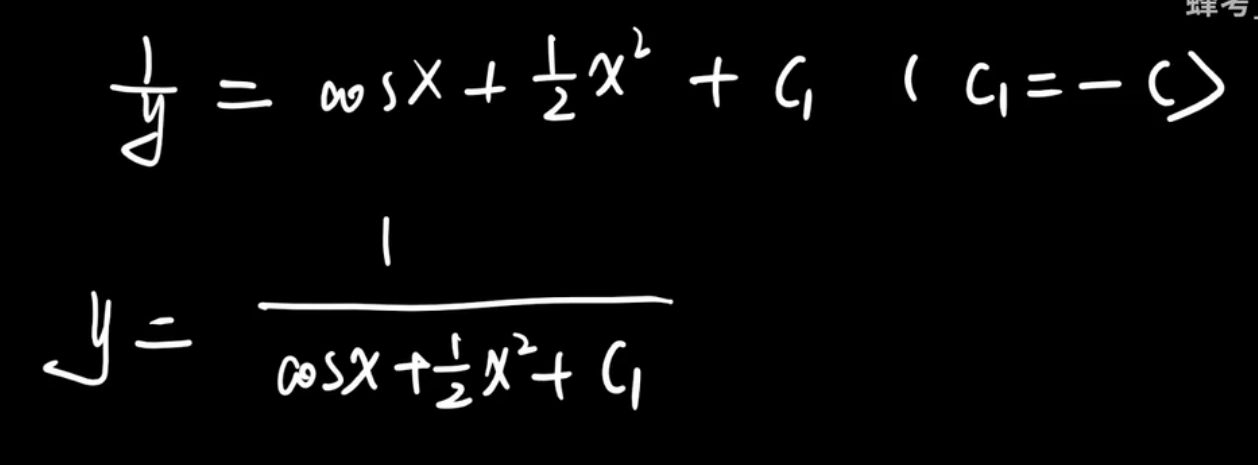 蜂考
1/y = cosx + 1/2 x² + C₁ ( C₁ = - C)
y = 1/(cosx + 1/2 x² + C₁)